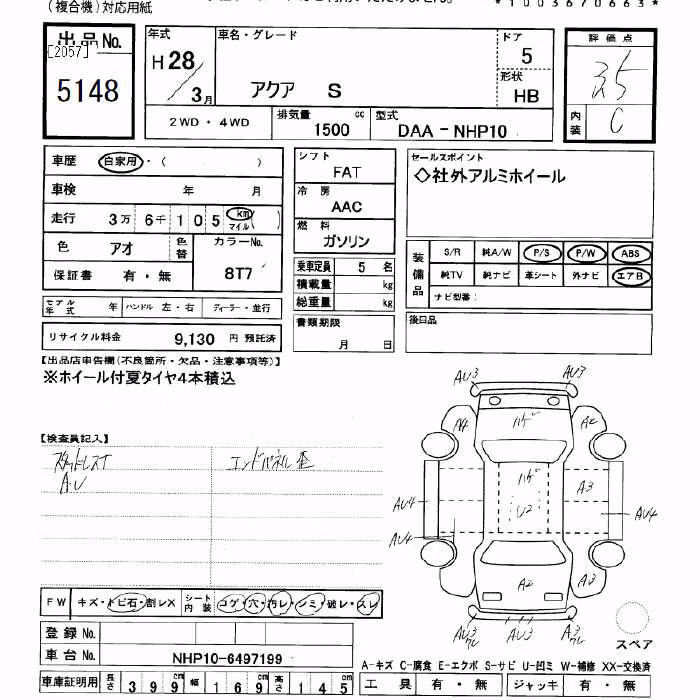 (複合機)対応用紙
*1003670663*
出品No.
[2057]
5148
年式
H28/3月
車名・グレード
アクア S
ドア
5
形状
HB
評価点
3.5
内装
C
2WD・4WD
排気量 cc
1500
型式
DAA-NHP10
車歴 自家用・( )
車検 年 月
走行 3万 6千 1 0 5 km マイル ( )
色 アオ
色替
カラーNo.
8T7
保証書 有・無
モデル年式 年 ハンドル 左・右 ディーラー・並行
リサイクル料金 9,130 円 預託済
シフト
FAT
冷房
AAC
燃料
ガソリン
乗車定員 5 名
積載量 kg
総重量 kg
書類期限
月 日
セールスポイント
◇社外アルミホイール
装備品
S/R 純A/W P/S P/W ABS
純TV 純ナビ 革シート 外ナビ エアB
ナビ型番:
後日品
【出品店申告欄(不良箇所・欠品・注意事項等)】
※ホイール付夏タイヤ4本積込
【検査員記入】
スタッドレスT
AU
エンドパネル歪
AU3 AU3
A4 ハゲ A2
ハゲ A3
AU4 U2 AU4
AU4
A3 A2 A3
AU3 ワレ AU3 A3 ワレ
スペア
FW キズ・トビ石・割レX
シート内装 コゲ・穴・汚レ・シミ・破レ・スレ
登録No.
車台No. NHP10-6497199
車庫証明用 長さ 399cm 幅 169cm 高さ 145cm
A-キズ C-腐食 E-エクボ S-サビ U-凹ミ W-補修 XX-交換済
工具 有・無 ジャッキ 有・無